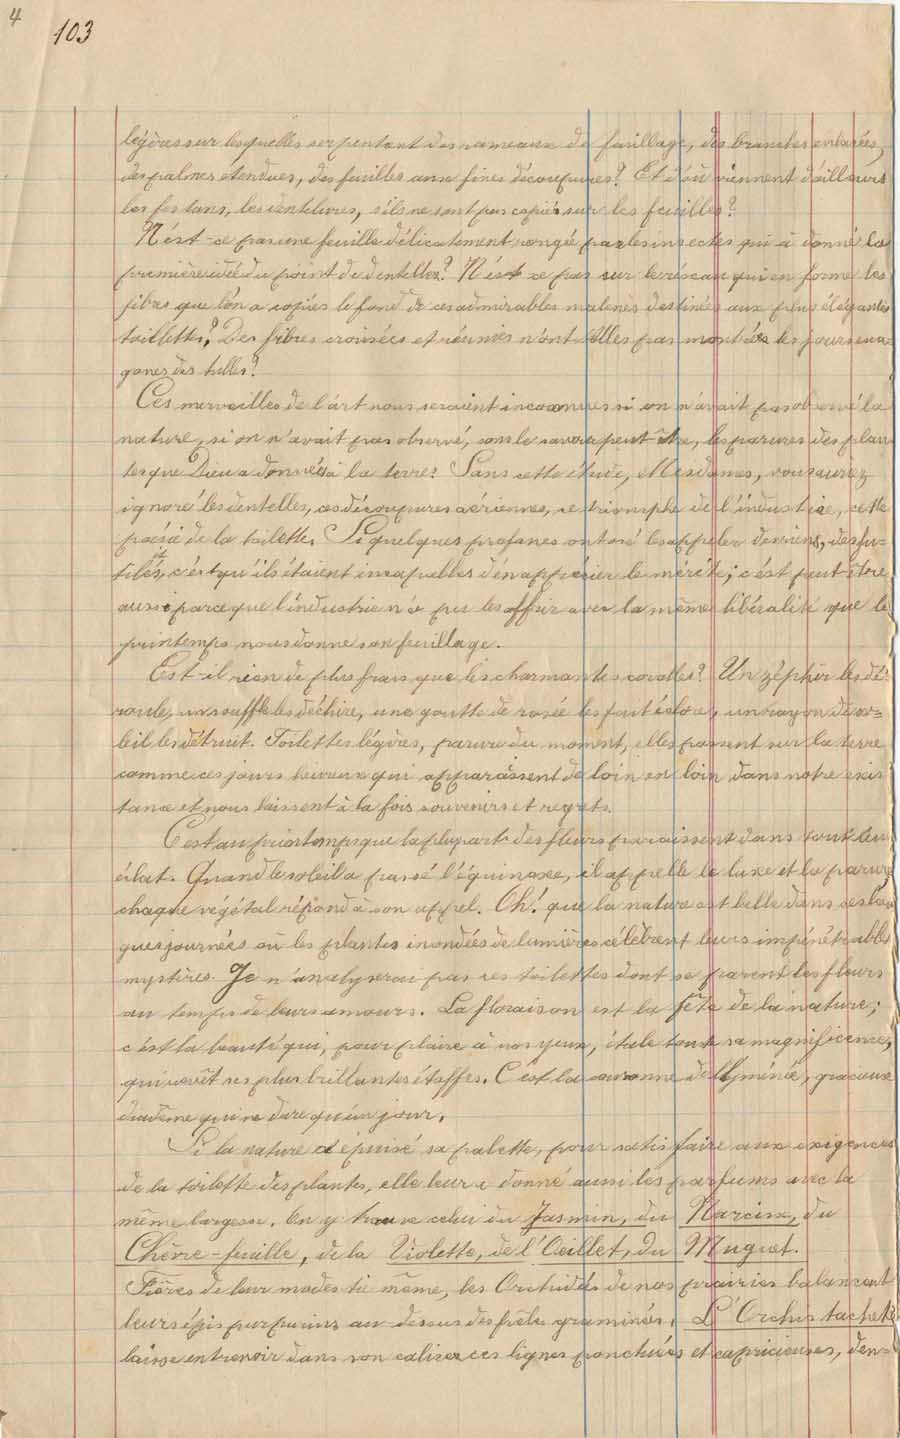 4
103
légères sur lesquelles serpentent des rameaux de feuillage, des branches enlacées,
des palmes etendues, des feuilles aux fines découpures? Et d'où viennent d'ailleurs
les festons, les dentelures, s'ils ne sont pas copiés sur les feuilles?
N'est-ce pas une feuille délicatement rongée par les insectes qui a donné la
première idée du point de dentelle? N'est-ce pas sur le réseau qui en forme les
fibres que l'on a copiés le fond de ces admirables malines destinées aux plus élégantes
toilettes? Des fibres croisées et réunies n'ont elles pas montrées les jours exa-
gones des tulles?
Ces merveilles de l'art nous seraient inconnues si on n'avait pas observé la
nature, si on n'avait pas observé, sans le savoir peut-être, les parures des plan-
tes que Dieu a données à la terre. Sans cette étude, Mesdames, vous auriez
ignoré les dentelles, ces découpures aériennes, ce triomphe de l'industrie, cette
poésie de la toilette. Si quelques profanes ont osé les appeler des riens, des fu-
tilités, c'est qu'ils étaient incapables d'en apprécier le mérite; c'est peut-être
aussi parce que l'industrie n'a pu les offrir avec la même libéralité que le
printemps nous donne son feuillage.
Est-il rien de plus frais que les charmantes corolles? Un zéphir les dé-
roule, un souffle les déchire, une goutte de rosée les fait éclore, un rayon de so-
leil les détruit. Toilettes légères, parure du moment, elles passent sur la terre
comme ces jours heureux qui apparaissent de loin en loin dans notre exis-
tance et nous laissent à la fois souvenirs et regrets.
C'est au printemps que la plupart des fleurs paraissent dans tout leur
éclat. Quand le soleil a passé l'équinoxe, il appelle le luxe et la parure
chaque végétal répond à son appel. Oh! que la nature est belle dans ses lon-
gues journées où les plantes inondées de lumières célèbrent leurs impénétrables
mystères. Je n'analyserai pas ces toilettes dont se parent les fleurs
au temps de leurs amours. La floraison est la fête de la nature;
c'est la beauté qui, pour plaire à nos yeux, étale toute sa magnificence,
qui revêt ses plus brillantes étoffes. C'est la couronne de l'hyménée, gracieux
diadème qui ne dure qu'un jour.
Si la nature a épuisé sa palette, pour satisfaire aux exigences
de la toilette des plantes, elle leur a donné aussi les parfums avec la
même largesse. On y trouve celui du Jasmin, du Narcisse, du
Chèvre-feuille, de la Violette, de l'Oeillet, du Muguet.
Fières de leur modestie même, les Orchidées de nos prairies balancent
leurs épis purpurins au-dessus des frêles graminées. L'Orchis tacheté
laisse entrevoir dans son calice ces lignes ponctuées et capricieuses, d'en-